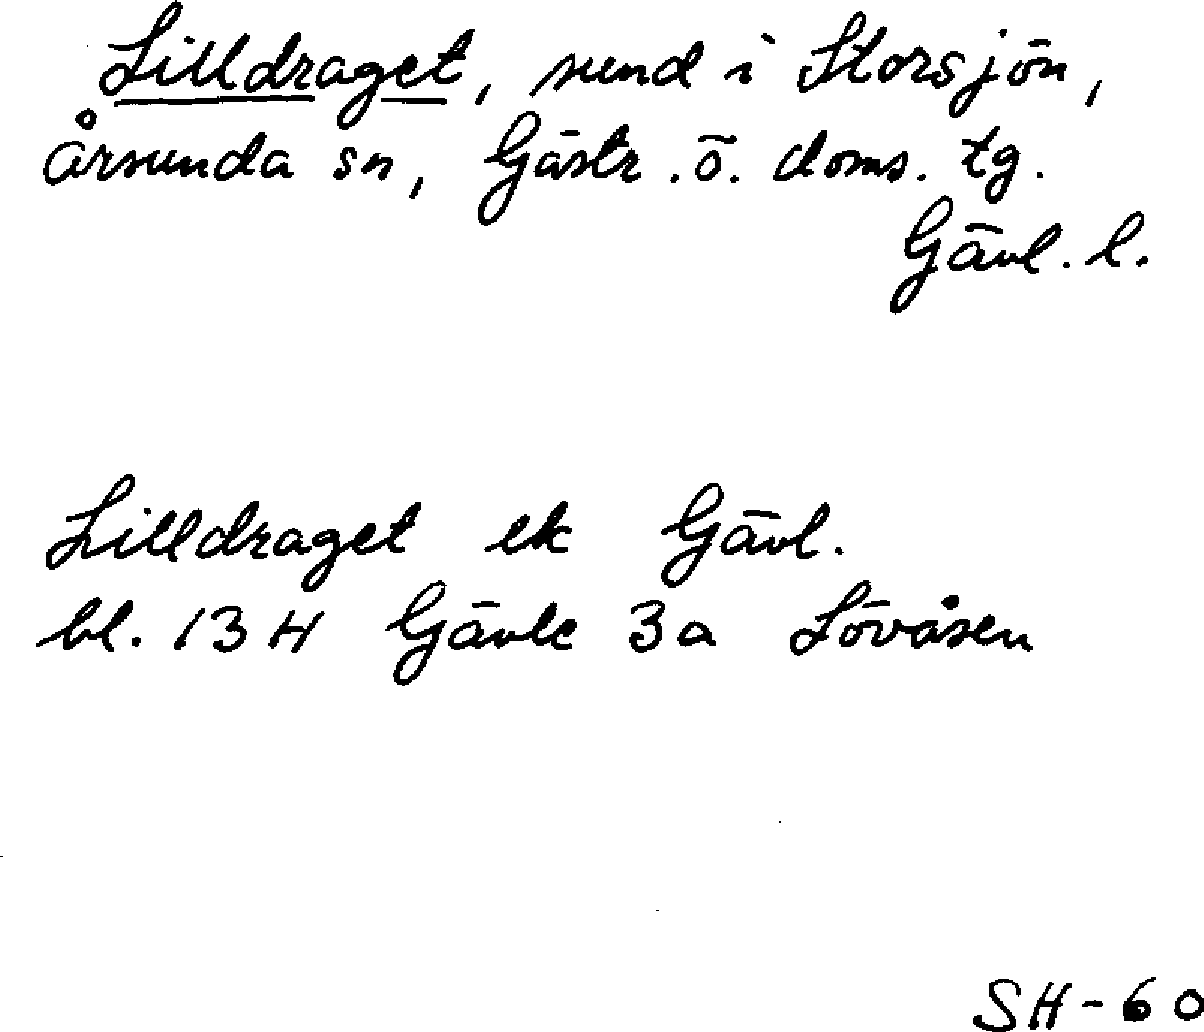 Lilldraget, sund i Storsjön,
Årsunda sn, Gästr. ö. doms. tg.
Gävl. l.
Lilldraget ek Gävl.
bl. 13 H Gävle 3a Lövåsen
SH-60